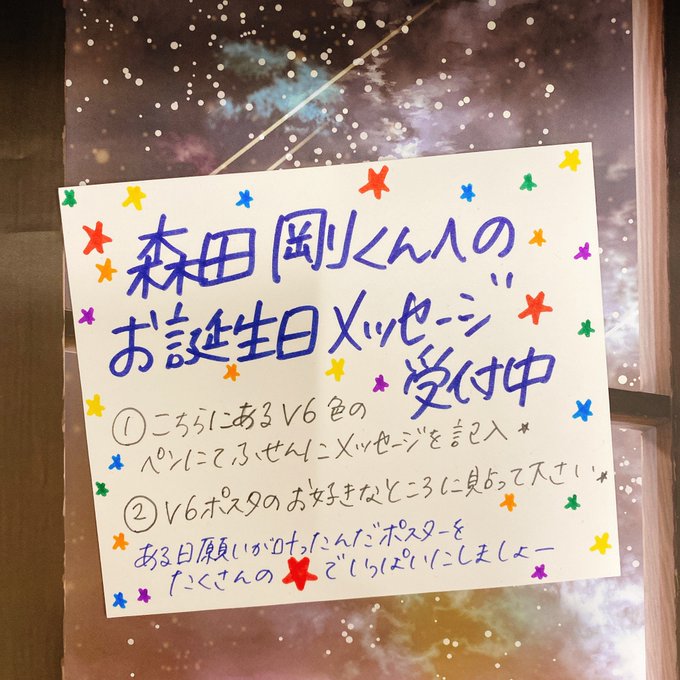 森田剛くんへの
お誕生日メッセージ
受付中
①こちらにあるV6色の
ペンにてふせんにメッセージを記入★
②V6ポスタのお好きなところに貼って下さい★
ある日願いが叶ったんだポスターを
たくさんの★でいっぱいにしましょー